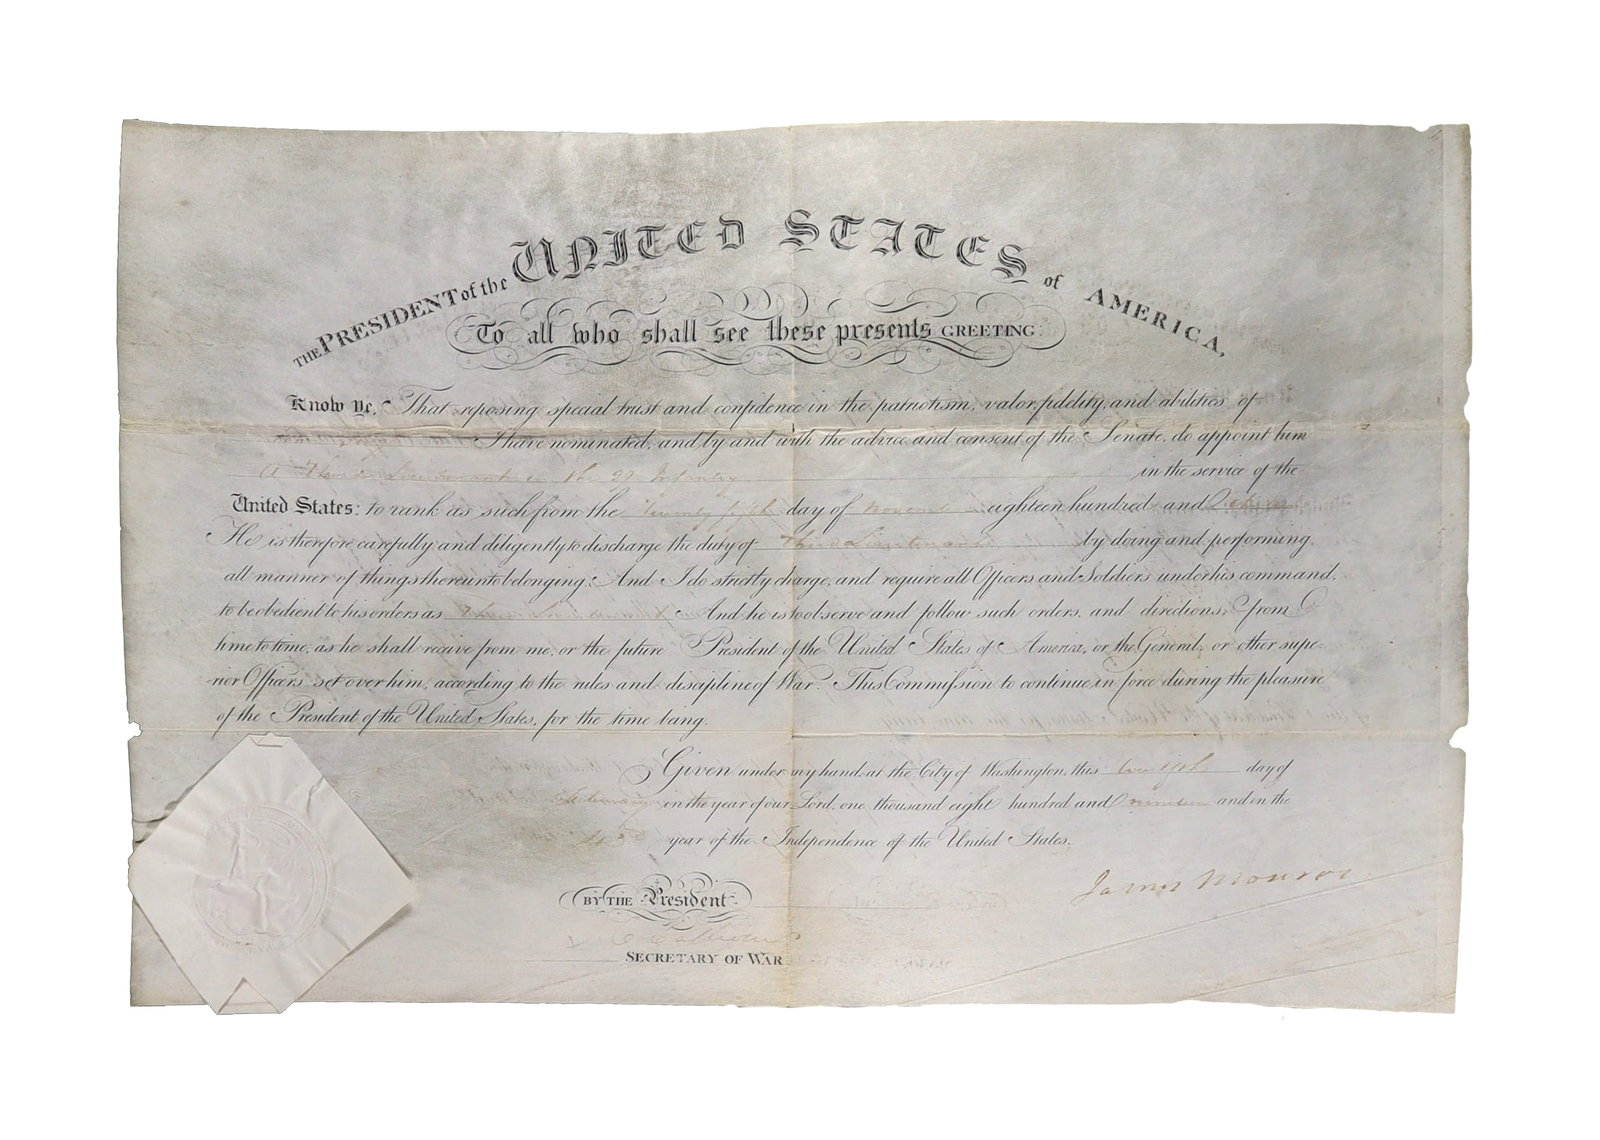 THE PRESIDENT of the UNITED STATES of AMERICA,
To all who shall see these presents GREETING:
Know Ye, That reposing special trust and confidence in the patriotism, valor, fidelity, and abilities of
I have nominated, and by and with the advice and consent of the Senate, do appoint him
A Third Lieutenant in the 29 Infantry in the service of the
United States: to rank as such from the twenty fifth day of November eighteen hundred and
He is therefore carefully and diligently to discharge the duty of Third Lieutenant by doing and performing
all manner of things thereunto belonging. And I do strictly charge, and require all Officers and Soldiers under his command,
to be obedient to his orders as Third Lieutenant And he is to observe and follow such orders, and directions, from
time to time, as he shall recive from me, or the future President of the United States of America, or the General, or other supe-
rior Officers set over him, according to the rules and discipline of War. This Commission to continue in force during the pleasure
of the President of the United States, for the time being.
Given under my hand, at the City of Washington, this twelfth day of
February in the year of our Lord, one thousand eight hundred and nineteen and in the
43d year of the Independence of the United States.
James Monroe
BY THE President
C Calhoun
SECRETARY OF WAR